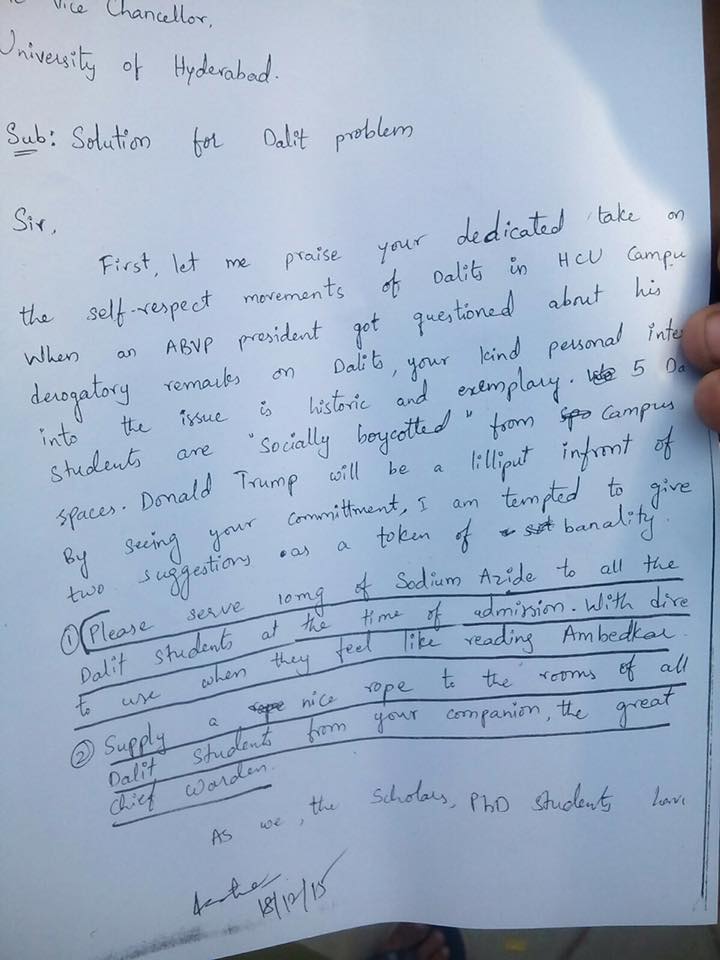 Vice Chancellor,
University of Hyderabad.
Sub: Solution for Dalit problem
Sir,
First, let me praise your dedicated take on
the self-respect movements of Dalits in HCU Campu
When an ABVP president got questioned about his
derogatory remarks on Dalits, your kind personal inte
into the issue is historic and exemplary. 5 Da
students are "Socially boycotted" from Campus
spaces. Donald Trump will be a lilliput infront of
By seeing your committment, I am tempted to give
two suggestions as a token of banality.
① Please serve 10mg of Sodium Azide to all the
Dalit students at the time of admission. With dire
to use when they feel like reading Ambedkar.
② Supply a nice rope to the rooms of all
Dalit students from your companion, the great
Chief Warden.
As we, the Scholars, PhD students have
18/12/15